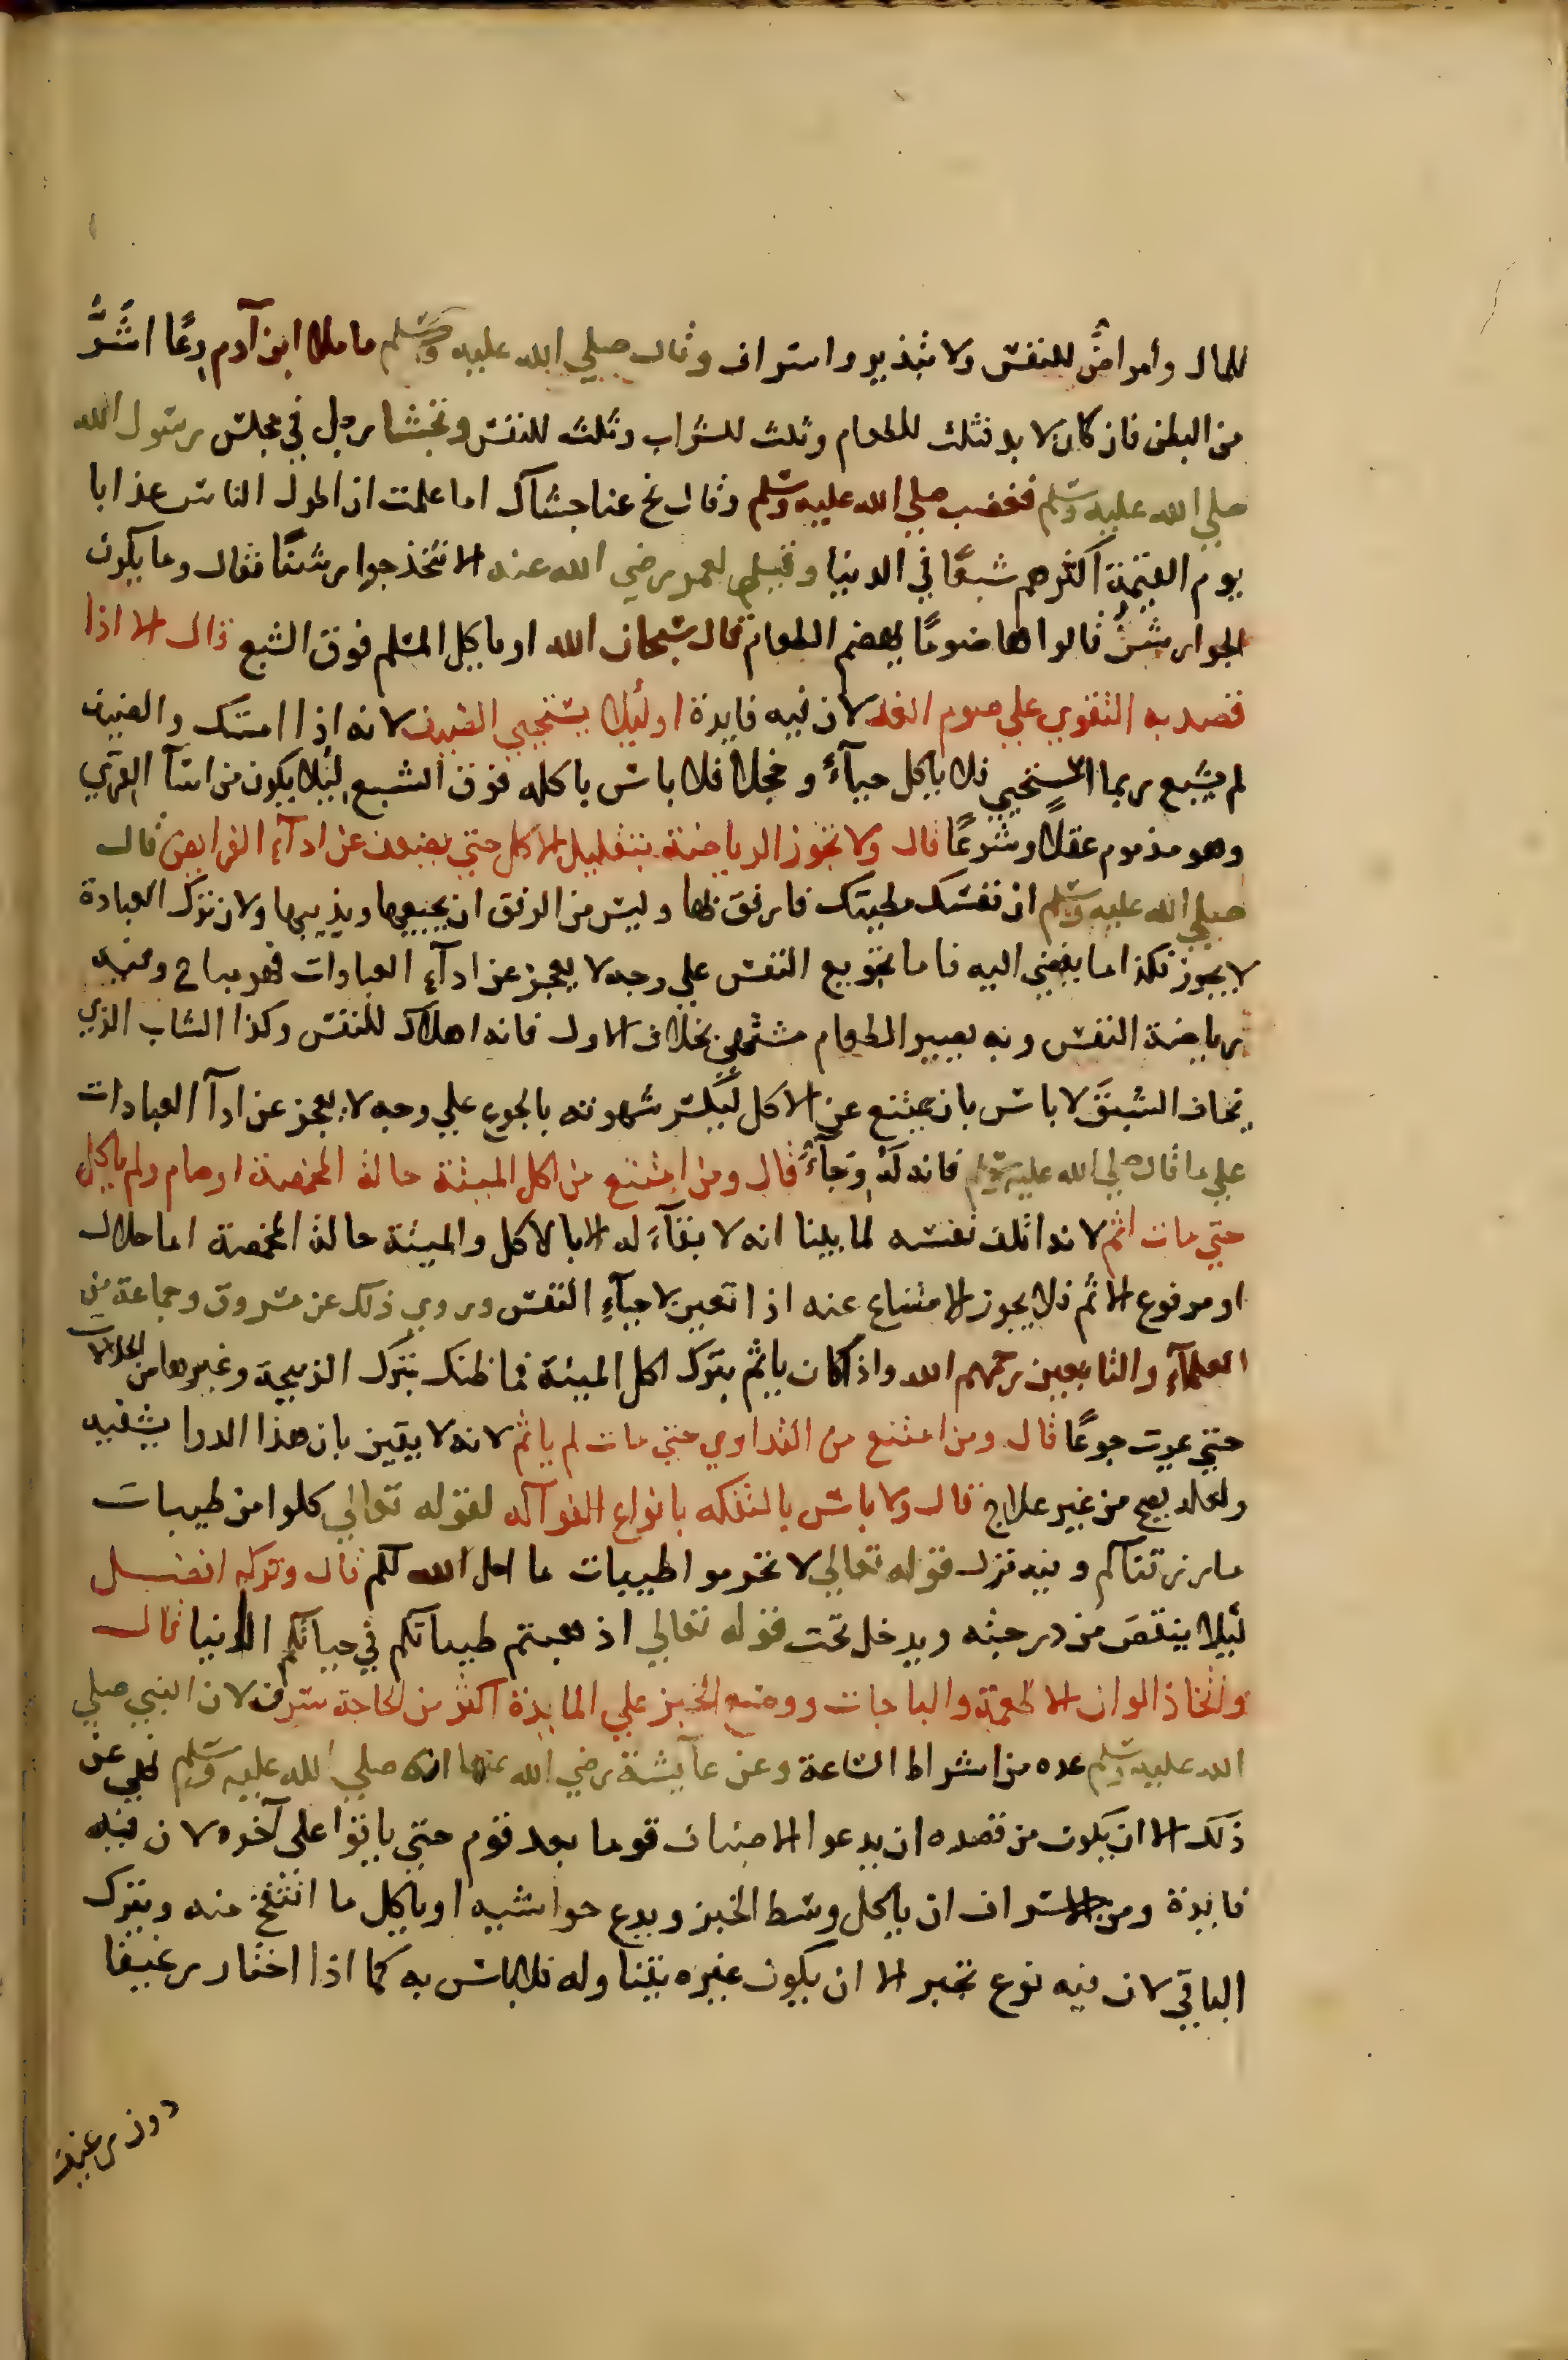 للمال وأمراضٌ للنفس ولا تبذير واسراف وقال صلي الله عليه وسلم ما ملا ابن آدم وعًا اشَرُّ
من البطن فان كان لا بد فثلث للطعام وثلث للشراب وثلث للنفس وتجشا رجل في مجلس رسول الله
صلي الله عليه وسلم فغضب صلي الله عليه وسلم وقال نح عنا جشاك اما علمت ان اطول الناس عذابا
يوم القيمة اكثرهم شبعًا في الدنيا وقيل لعمر رضي الله عنه الا نتخذ جوارشنًا فقال وما يكون
الجوارشنُ قالوا هاضومًا يهضم الطعام فقال سبحان الله او ياكل المسلم فوق الشبع قال الا اذا
قصد به التقوي علي صوم الغد لان فيه فايدة او ليلا يستحيي الضيف لانه اذا امسك والضيف
لم يشبع ربما استحيي فلا ياكل حياءً وخجلا فلا باس باكله فوق الشبع ليلا يكون من اسآ القري
وهو مذموم عقلًا وشرعًا قال ولا تجوز الرياضة بتقليل الاكل حتي يضعف عن ادآء الفرايض قال
صلي الله عليه وسلم ان نفسك مطيتك فارفق بها وليس من الرفق ان يجيعها ويذيبها ولان ترك العبادة
لا يجوز فكذا ما يفضي اليه فاما تجويع النفس علي وجه لا يعجز عن ادآء العبادات فهو مباح وفيه
رياضة النفس وبه يصير الطعام مشتهي بخلاف الاول فانه اهلاك للنفس وكذا الشاب الذي
يخاف الشبقَ لا باس بان يمتنع عن الاكل ليكسر شهوته بالجوع علي وجه لا يعجز عن ادآ العبادات
علي ما قال صلي الله عليه وسلم فانه لَهُ وِجَآءٌ قال ومن امتنع من اكل الميتة حالة المخمصة او صام ولم ياكل
حتي مات اثم لانه اتلف نفسه لما بينا انه لا بقآءَ له الا بالاكل والميتة حالة المخمصة اما حلال
او مرفوع الاثم فلا يجوز الامتناع عنه اذا تعين لاحيآءِ النفس وروي ذلك عن مسروق وجماعة من
العلمآءِ والتابعين رحمهم الله واذا كان ياثم بترك اكل الميتة فما ظنك بترك الذبيحة وغيرها من الحلالات
حتي يموت جوعًا قال ومن امتنع من التداوي حتي مات لم ياثم لانه لا يقين بان هذا الدوا يشفيه
ولعله يصح من غير علاج قال ولا باس بالتفكه بانواع الفواكه لقوله تعالي كلوا من طيبات
ما رزقناكم وفيه نزل قوله تعالي لا تحرموا طيبات ما احل الله لكم قال وتركه افضل
ليلا ينتقص من درجته ويدخل تحت قوله تعالي اذهبتم طيباتكم في حياتكم الدنيا قال
واتخاذ الوان الاطعمة والباجات ووضع الخبز علي المايدة اكثر من الحاجة سرف لان النبي صلي
الله عليه وسلم عده من اشراط الساعة وعن عآيشة رضي الله عنها انه صلي الله عليه وسلم نهي عن
ذلك الا ان يكون من قصده ان يدعوا الاضياف قوما بعد قوم حتي ياتوا على آخره لان فيه
فايدة ومن الاسراف ان ياكل وسط الخبز ويدع حواشيه او ياكل ما انتفخ منه ويترك
الباقي لان فيه نوع تجبر الا ان يكون غيره يتناوله فلا باس به كما اذا اختار رغيفا
دون رغيف